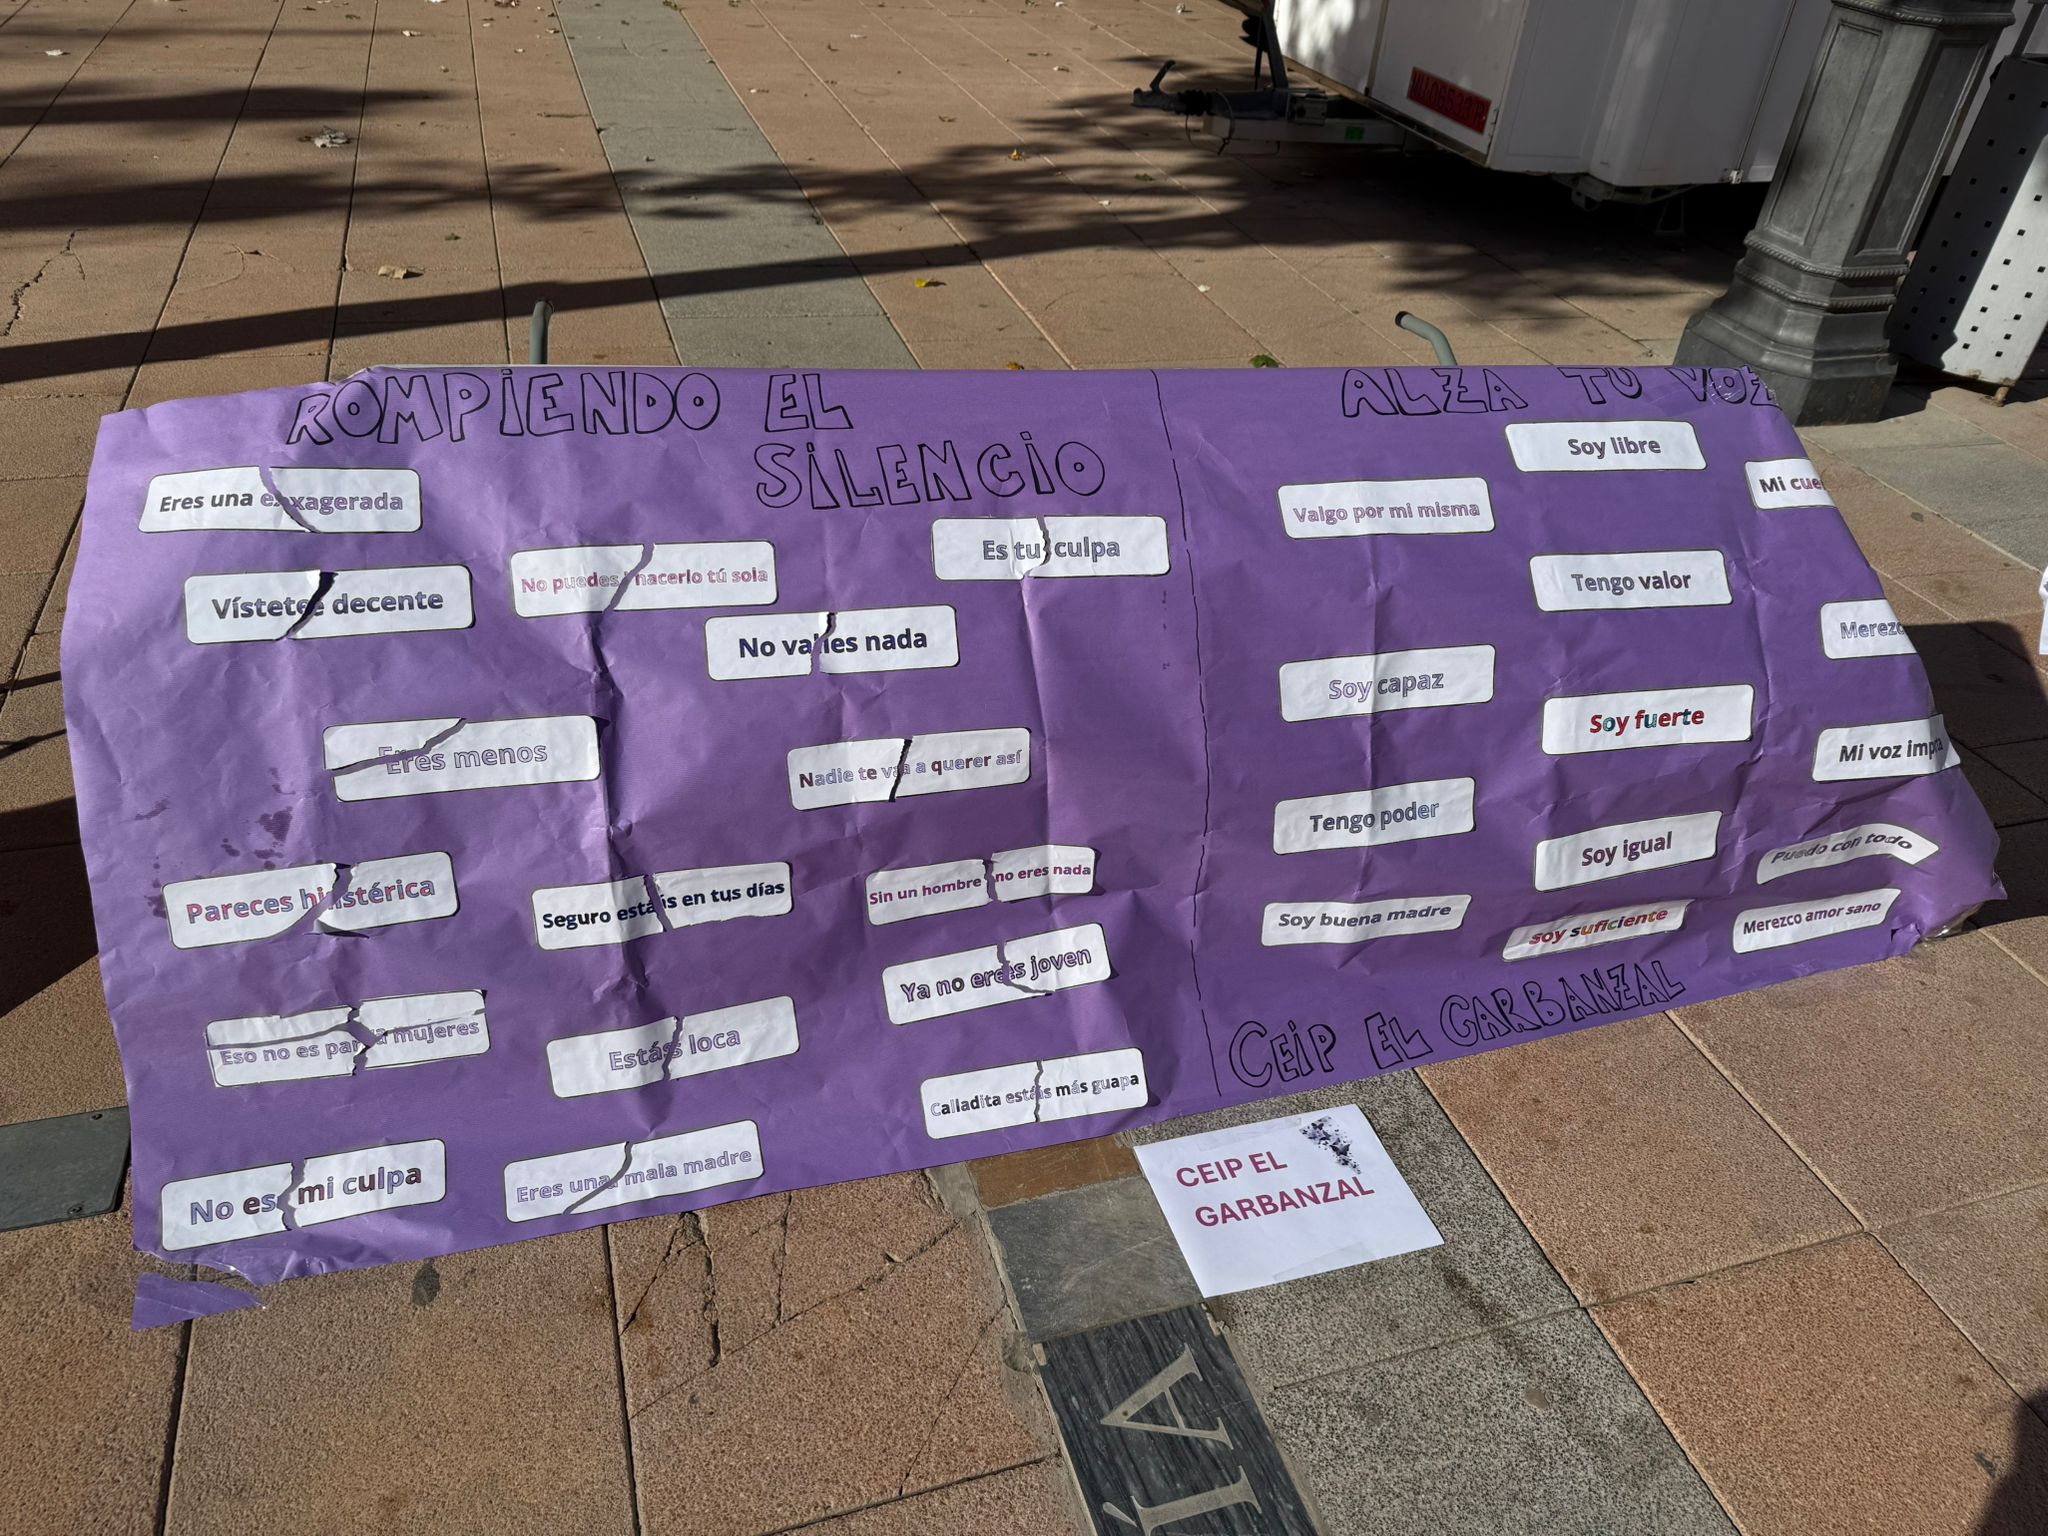 ROMPIENDO EL
SILENCIO
Eres una exxagerada
Vístetee decente
No puedes hacerlo tú sola
Es tu culpa
No valles nada
Eres menos
Nadie te va a querer así
Pareces hiistérica
Seguro estáis en tus días
Sin un hombre no eres nada
Ya no erees joven
Eso no es para mujeres
Estáss loca
Calladita estáis más guapa
No es mi culpa
Eres una mala madre
ALZA TU VOZ
Soy libre
Valgo por mi misma
Mi
Tengo valor
Soy capaz
Soy fuerte
Mi voz
Tengo poder
Soy igual
Puedo con todo
Soy buena madre
Soy suficiente
Merezco amor sano
CEIP EL GARBANZAL
CEIP EL
GARBANZAL